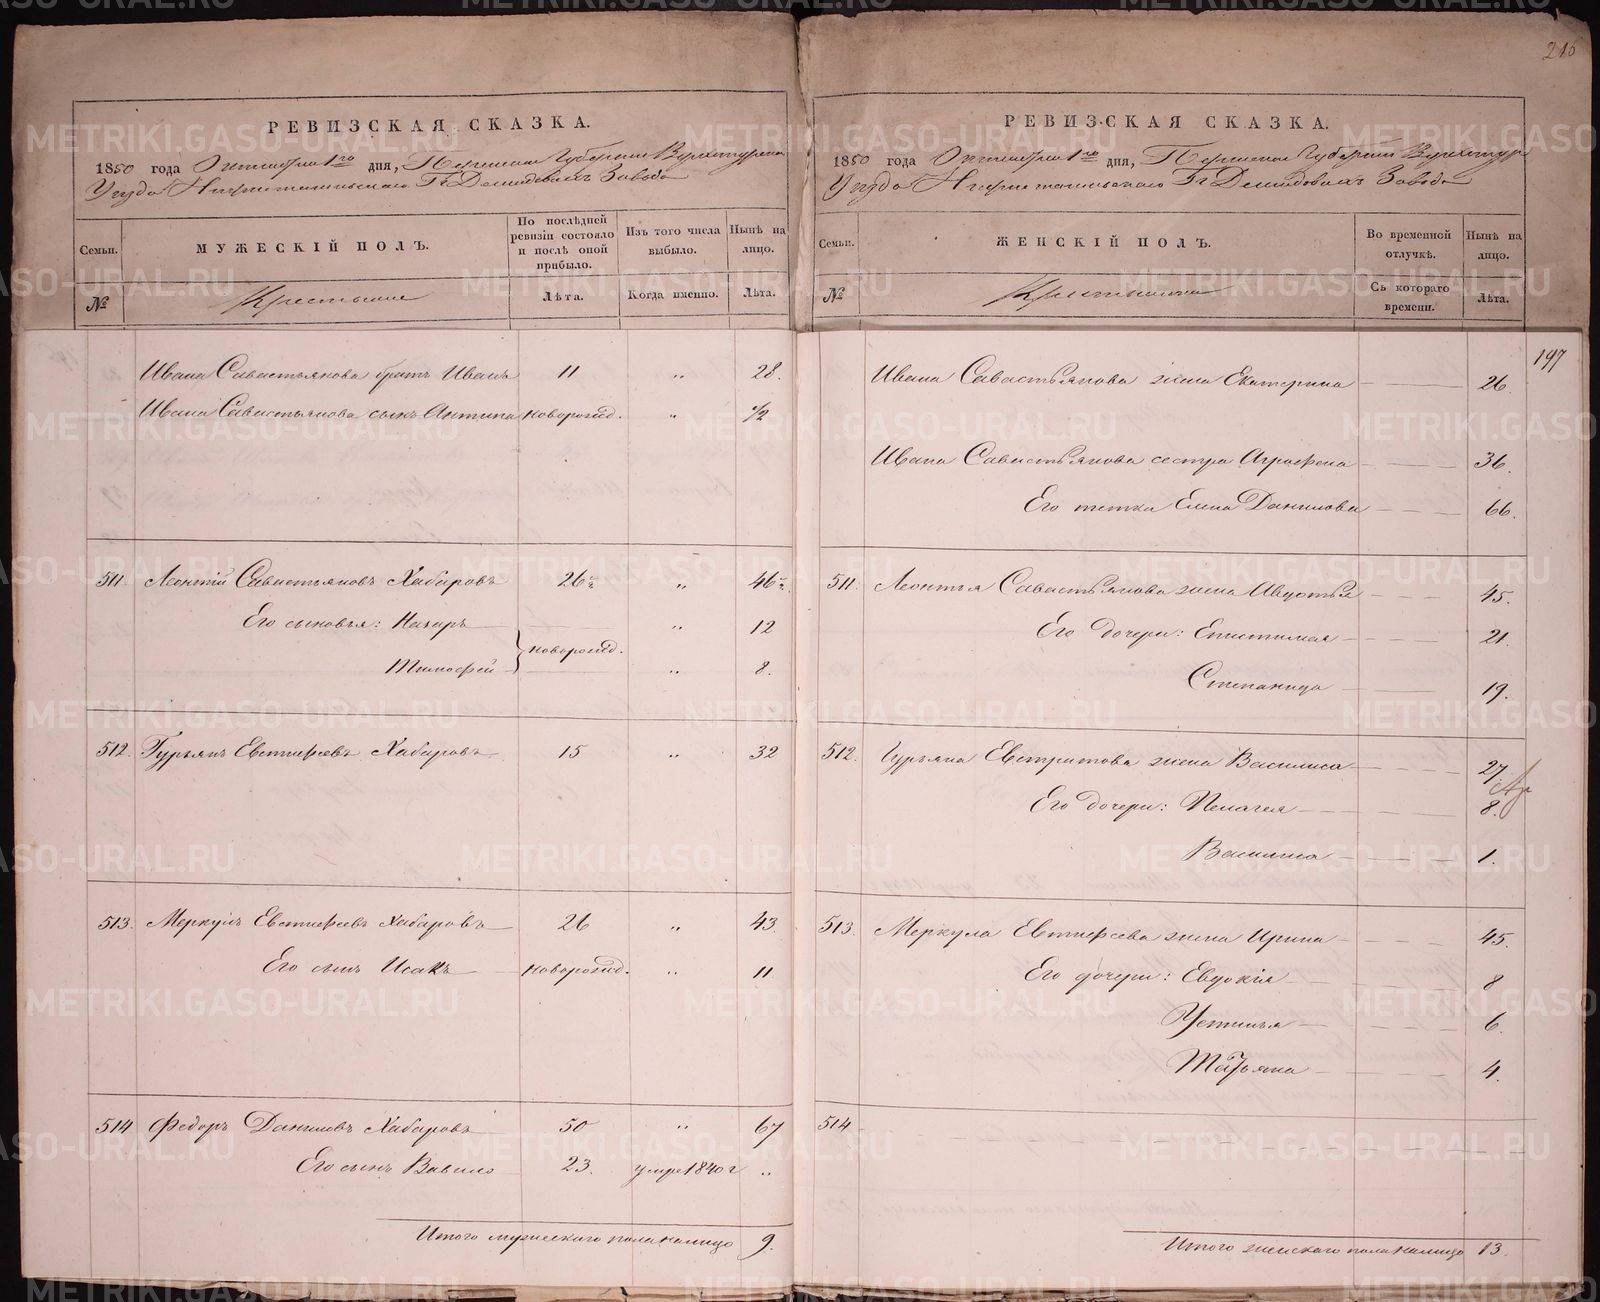 215
РЕВИЗСКАЯ СКАЗКА.
1850 года Октября 1го дня, Пермской Губернии Верхотурска
Уезда Нижнетагильскаго Гг Демидовыхъ Завода
Семьи.
МУЖЕСКІЙ ПОЛЪ.
По послѣдней ревизіи состояло и послѣ оной прибыло.
Изъ того числа выбыло.
Нынѣ на лицо.
№
Крестьяне
Лѣта.
Когда именно.
Лѣта.
Ивана Савастьянова братъ Иванъ 11 „ 28.
Ивана Савастьянова сынъ Антипа новорожд. „ 1/2
511. Леонтій Савастьяновъ Хабаровъ 26½ „ 46½
Его сыновья: Назаръ „ 12
новорожд.
Тимофей „ 8.
512. Гурьянъ Евстифеевъ Хабаровъ 15 „ 32
513. Меркулъ Евстифеевъ Хабаровъ 26 „ 43
Его сынъ Исакъ новорожд. „ 11
514 Федоръ Даниловъ Хабаровъ 50 „ 67
Его сынъ Вавило 23. умре 1840 г „
Итого мужескаго пола налицо 9.
РЕВИЗСКАЯ СКАЗКА.
1850 года Октября 1го дня, Пермской Губернии Верхотур
Уезда Нижнетагильскаго Гг Демидовыхъ Завода
Семьи.
ЖЕНСКІЙ ПОЛЪ.
Во временной отлучкѣ.
Нынѣ на лицо.
№
Крестьянки
Съ котораго времени.
Лѣта.
197
Ивана Савастьянова жена Екатерина 26
Ивана Савастьянова сестра Агрофена 36.
Его тетка Елена Данилова 66.
511. Леонтья Савастьянова жена Авдотья 45.
Его дочери: Епистимея 21.
Степанида 19.
512. Гурьяна Евстратова жена Василиса 27
Его дочери: Пелагея 8.
Василиса 1.
513. Меркула Евстифеева жена Ирина 45.
Его дочери: Евдокія 8
Устинья 6.
Татьяна 4.
514
Итого женскаго пола налицо 13.
METRIKI.GASO-URAL.RU